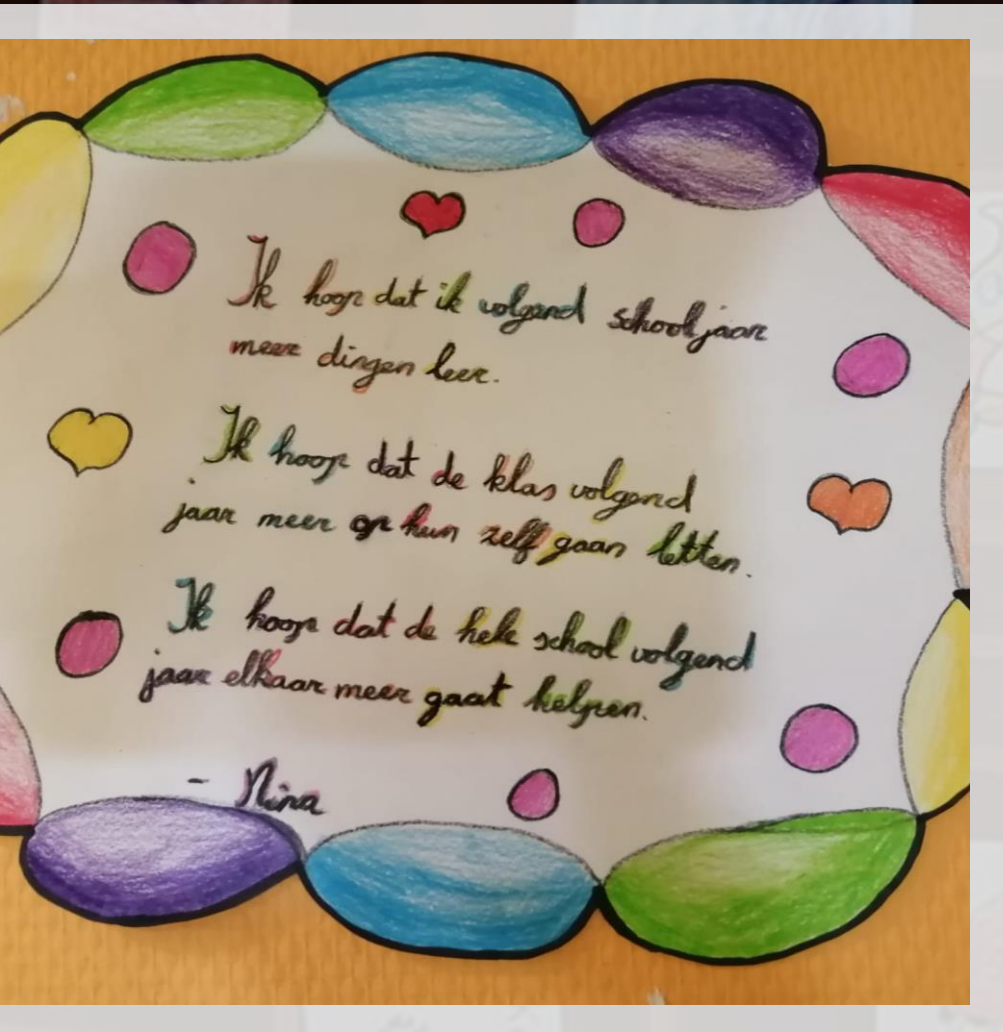 Ik hoop dat ik volgend schooljaar
meer dingen leer.
Ik hoop dat de klas volgend
jaar meer op hun zelf gaan letten.
Ik hoop dat de hele school volgend
jaar elkaar meer gaat helpen.
- Nina